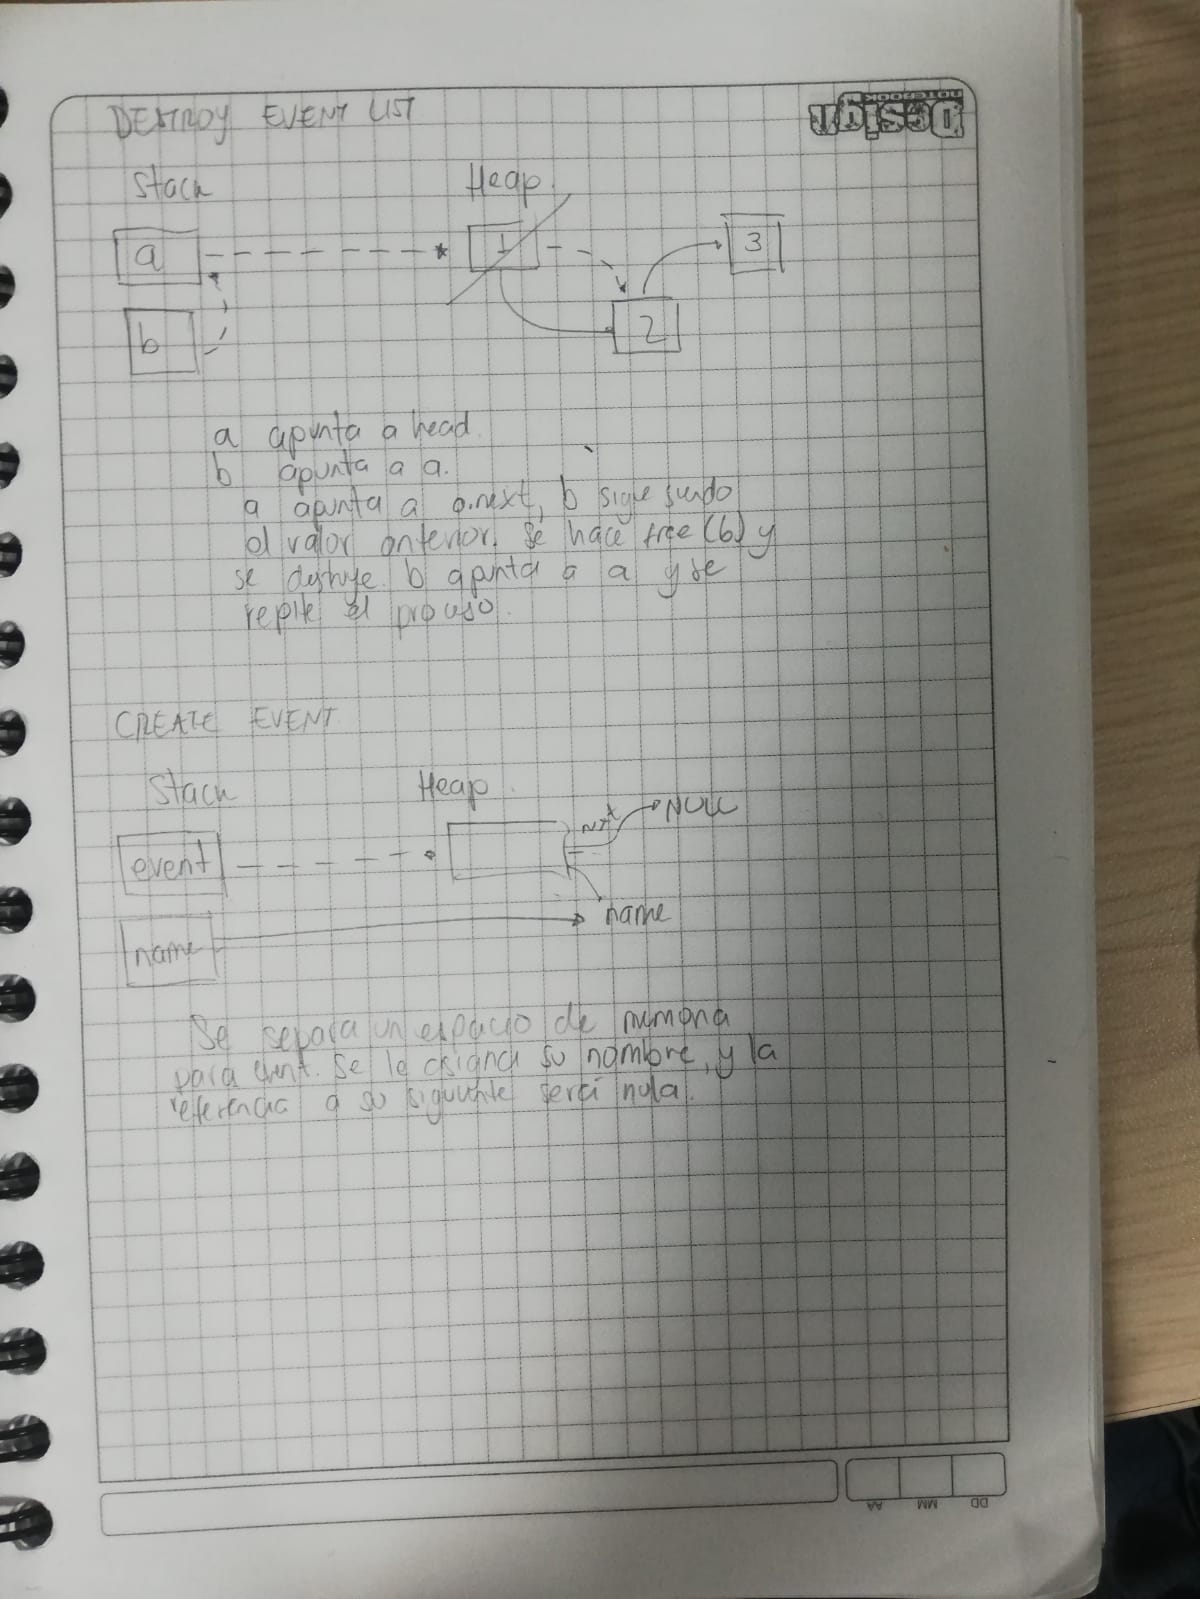 DESTROY EVENT LIST
Design
NOTEBOOK
Stack Heap
a 1 3
b 2
a apunta a head.
b apunta a a.
a apunta a a.next, b sigue siendo
el valor anterior. Se hace free (b) y
se destruye. b apunta a a y se
repite el proceso.
CREATE EVENT
Stack Heap
event next NULL
name name
Se separa un espacio de memoria
para event. Se le asigna su nombre, y la
referencia a su siguiente será nula.
AA MM DD